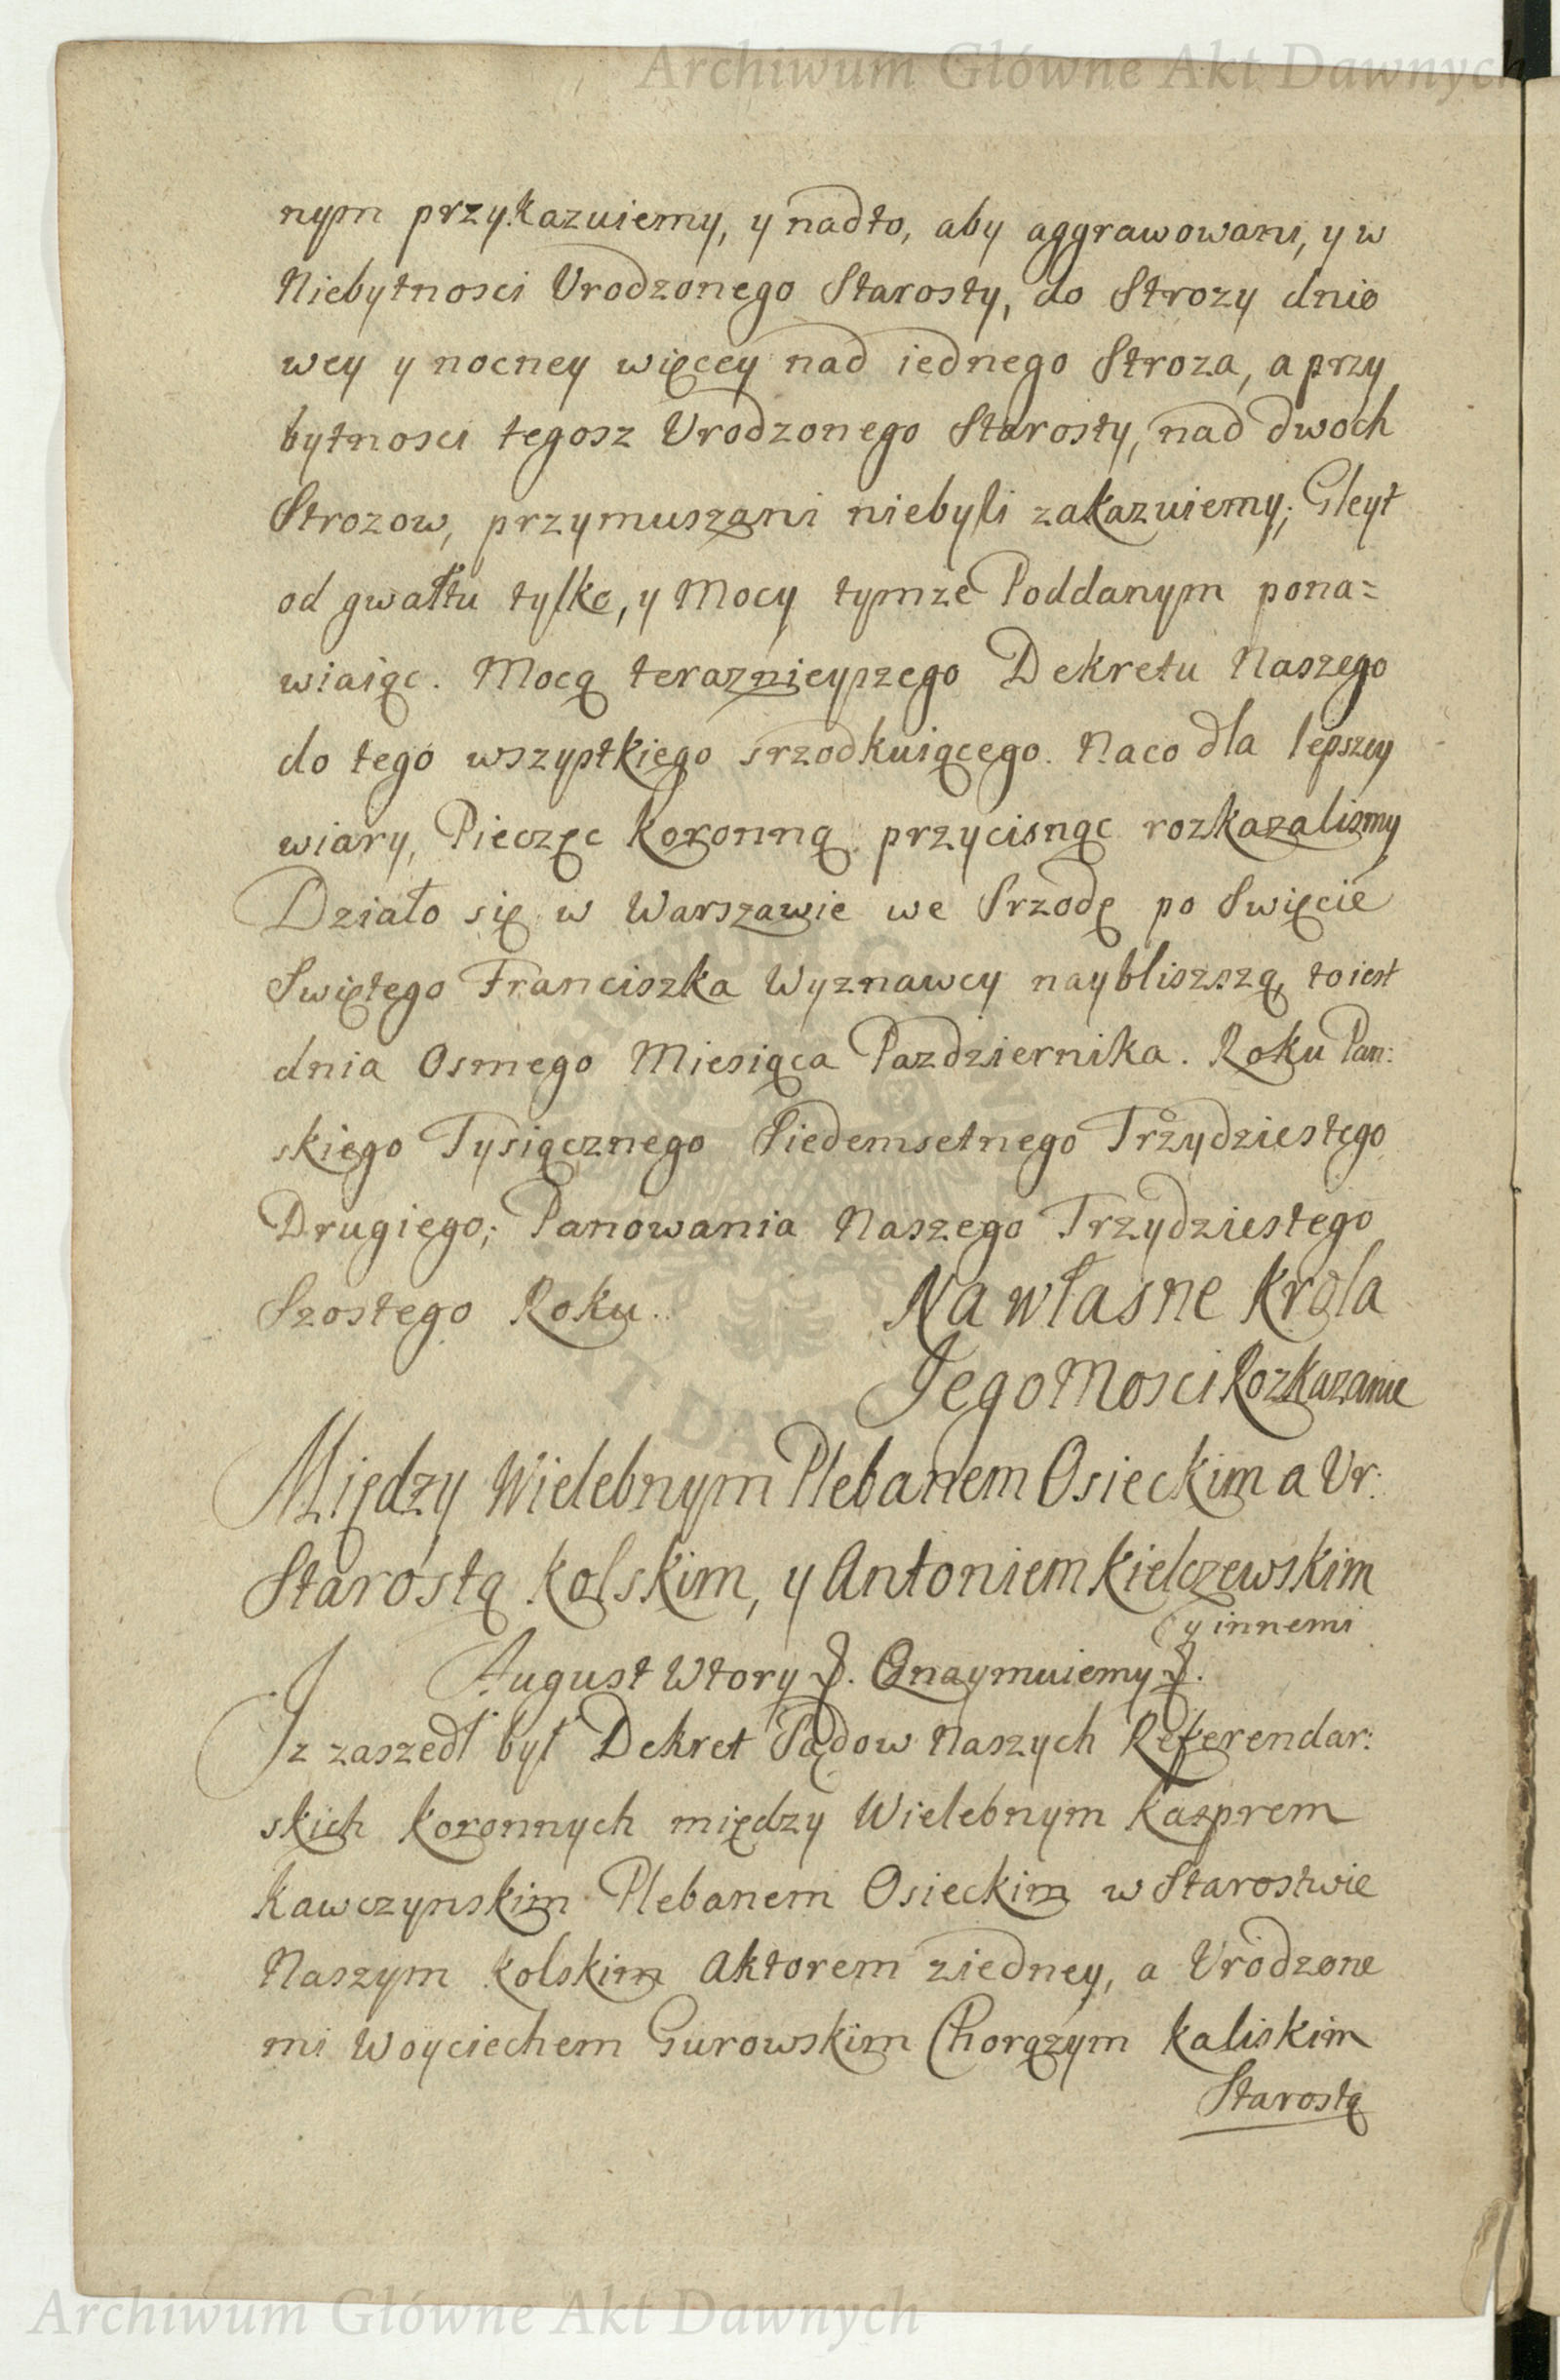 Archiwum Główne Akt Dawnych
nym przykazuiemy, y nadto, aby aggrawowani, y w
Niebytnosci Urodzonego Starosty, do Strozy dnio
wey y nocney więcey nad iednego Stroza, a przy
bytnosci tegosz Urodzonego Starosty, nad dwoch
Strozow, przymuszani niebyli zakazuiemy; Gleyt
od gwałtu tylko, y Mocy tymze Poddanym pona=
wiaiąc. Mocą teraznieyszego Dekretu Naszego
do tego wszystkiego srzodkuiącego. Naco dla lepszey
wiary, Pieczęc Koronną przycisnąc rozkazalismy
Działo się w Warszawie we Srzodę po Swięcie
Swiętego Franciszka Wyznawcy naybliszszą, to iest
dnia Osmego Miesiąca Pazdziernika. Roku Pan:
skiego Tysiącznego Siedemsetnego Trzydziestego
Drugiego; Panowania Naszego Trzydziestego
Szostego Roku.. Na własne Krola
Jego Mosci Rozkazanie
Między Wielebnym Plebanem Osieckim a Ur:
Starostą Kolskim, y Antoniem Kielczewskim
(y innemi
August Wtory &. Oznaymuiemy &.
Iz zaszedł był Dekret Sądow Naszych Referendar:
skich Koronnych między Wielebnym Kasprem
Kawczynskim Plebanem Osieckim w Starostwie
Naszym Kolskim Aktorem ziedney, a Urodzone
mi Woyciechem Gurowskim Chorązym Kaliskim
Starostą
Archiwum Główne Akt Dawnych